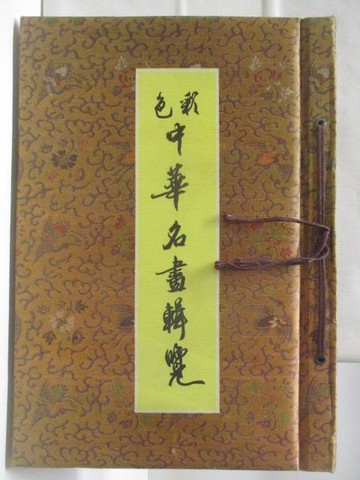 彩色
中華名畫輯覽